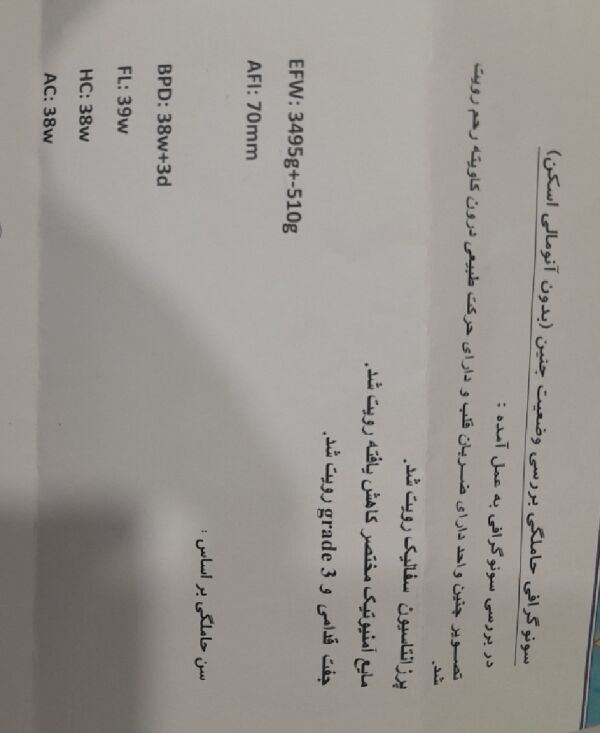 سونوگرافی حاملگی بررسی وضعیت جنین (بدون آنومالی اسکن)
در بررسی سونوگرافی به عمل آمده :
تصویر جنین واحد دارای ضربان قلب و دارای حرکت طبیعی درون کاویته رحم رویت
شد.
پرزانتاسیون سفالیک رویت شد.
مایع آمنیوتیک مختصر کاهش یافته رویت شد.
جفت قدامی و grade 3 رویت شد.
EFW: 3495g+-510g
AFI: 70mm
سن حاملگی بر اساس :
BPD: 38w+3d
FL: 39w
HC: 38w
AC: 38w